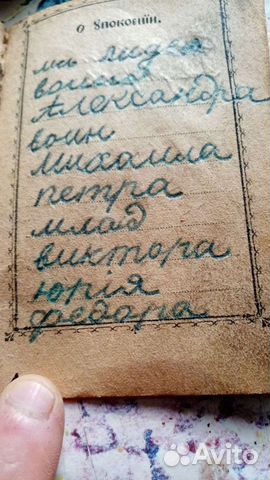 О Упокоенїи.
мл лидво
воинов
Александра
воин
михаила
петра
млад
виктора
юрія
федара
Avito